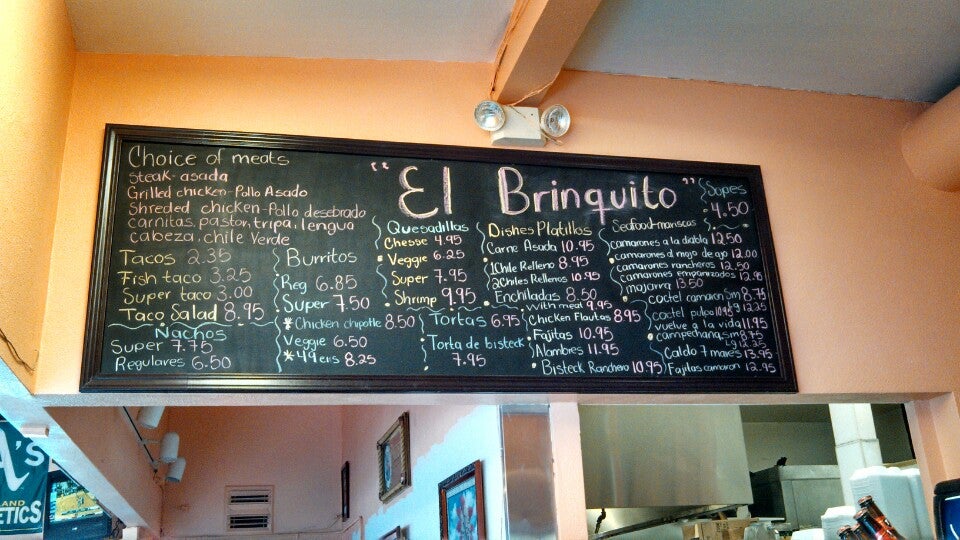 "El Brinquito"
Choice of meats
steak-asada
Grilled chicken-Pollo Asado
Shreded chicken-Pollo desebrado
carnitas, pastor, tripa, lengua
cabeza, chile Verde
Tacos 2.35
Fish taco 3.25
Super taco 3.00
Taco Salad 8.95
Nachos
Super 7.75
Regulares 6.50
Burritos
Reg 6.85
Super 7.50
*Chicken chipotle 8.50
Veggie 6.50
*49ers 8.25
Quesadillas
Chesse 4.95
Veggie 6.25
Super 7.95
Shrimp 9.95
Tortas 6.95
Torta de bisteck
7.95
Dishes Platillos
Carne Asada 10.95
1 Chile Relleno 8.95
2 Chiles Rellenos 10.95
Enchiladas 8.50
with meat 9.95
Chicken Flautas 8.95
Fajitas 10.95
Alambres 11.95
Bisteck Ranchero 10.95
Seafood-mariscos
camarones a la diabla 12.50
camarones al mojo de ajo 12.00
camarones rancheros 12.50
camarones empanizados 12.95
mojarra 13.50
coctel camaron Sm 8.75
Lg 12.25
coctel pulpo 10.95
vuelve a la vida 11.95
campechana Sm 8.75
Lg 12.25
Caldo 7 mares 13.95
Fajitas camaron 12.95
Sopes
4.50
A's
AND
ETICS